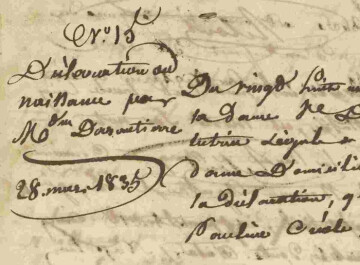 No. 15
Déclaration de
naissance par
Mdm Darautière
28 mars 1835
Du vingt huit
la dame
tutrice Légale
dame Domicilié
la déclaration, q
Pauline Créole